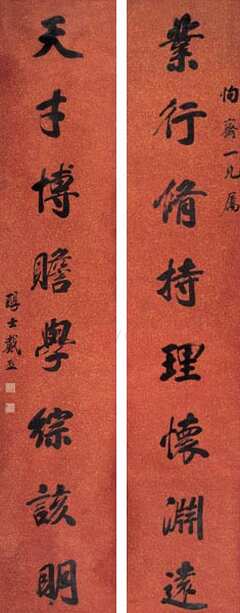 業行脩持理懷淵遠
恂齋一兄屬
天才博贍學綜該明
醇士戴熙